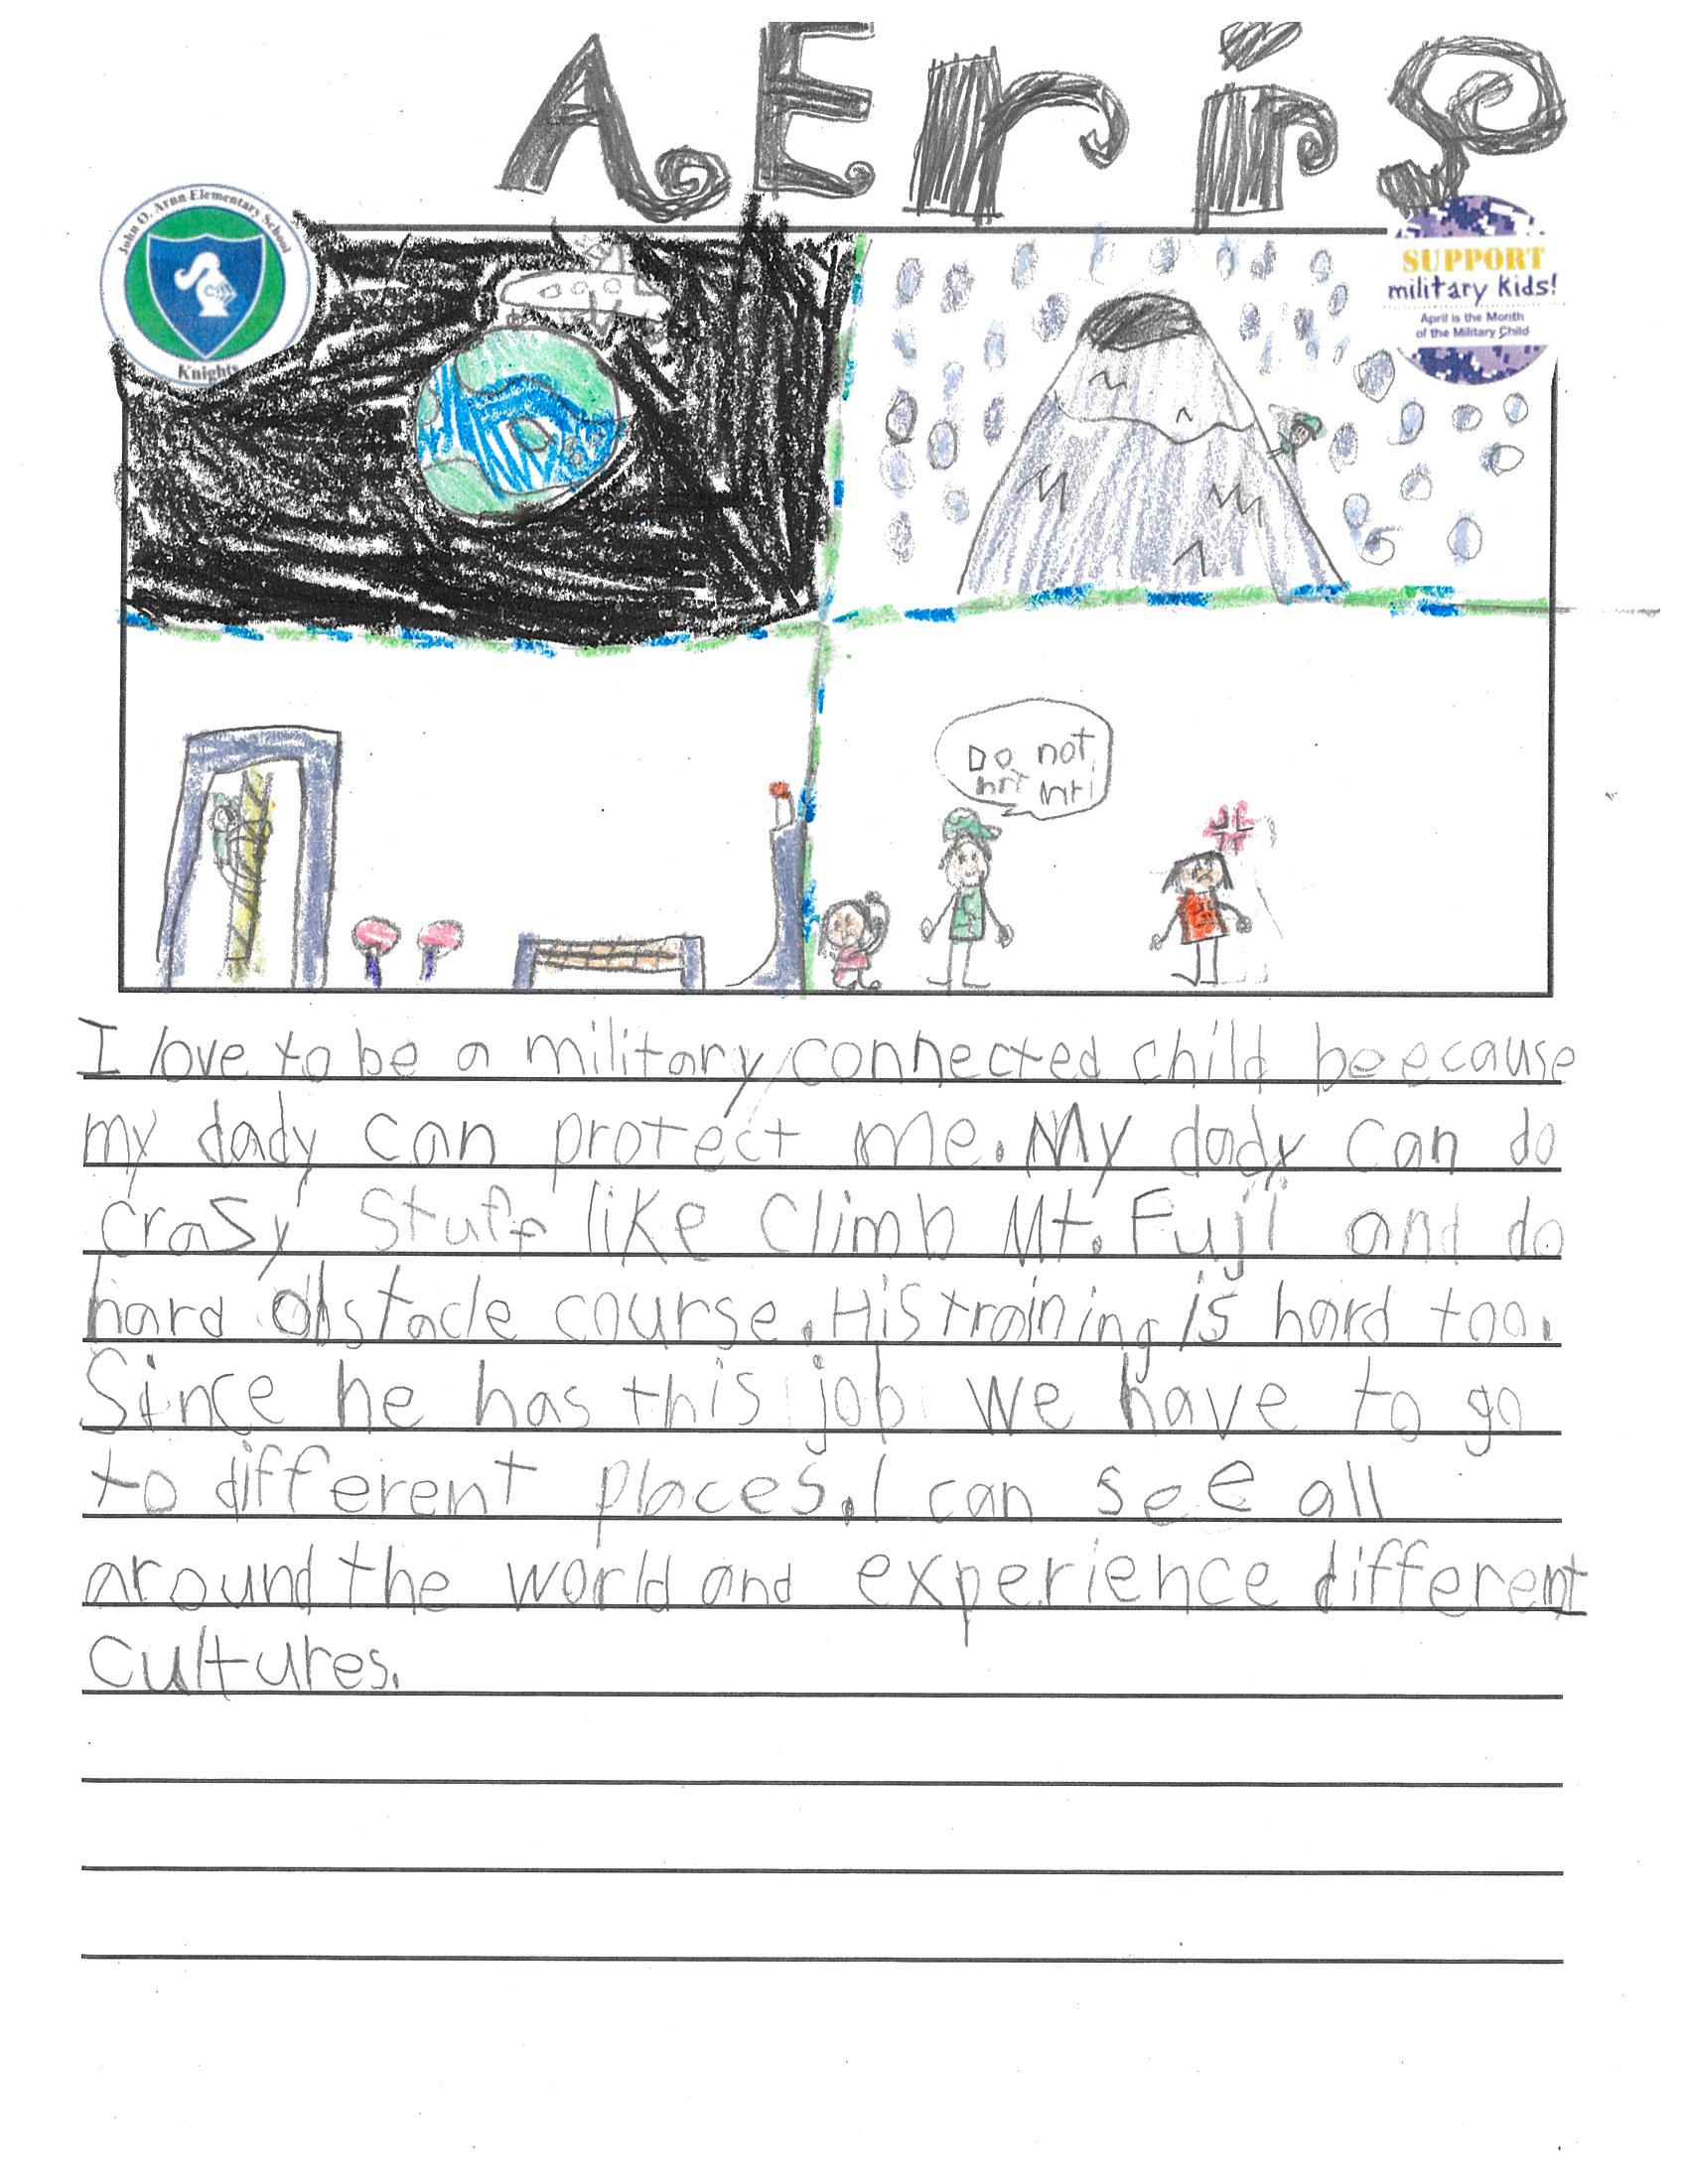 AEris
John O. Arnn Elementary School
Knights
SUPPORT
military kids!
April is the Month
of the Military Child
Do not
I love to be a military connected child beecause
my dady can protect me. My dady can do
crasy stuff like climb Mt. Fuji and do
hard obstacle course. His training is hard too.
Since he has this job we have to go
to different places. I can see all
around the world and experience different
cultures.